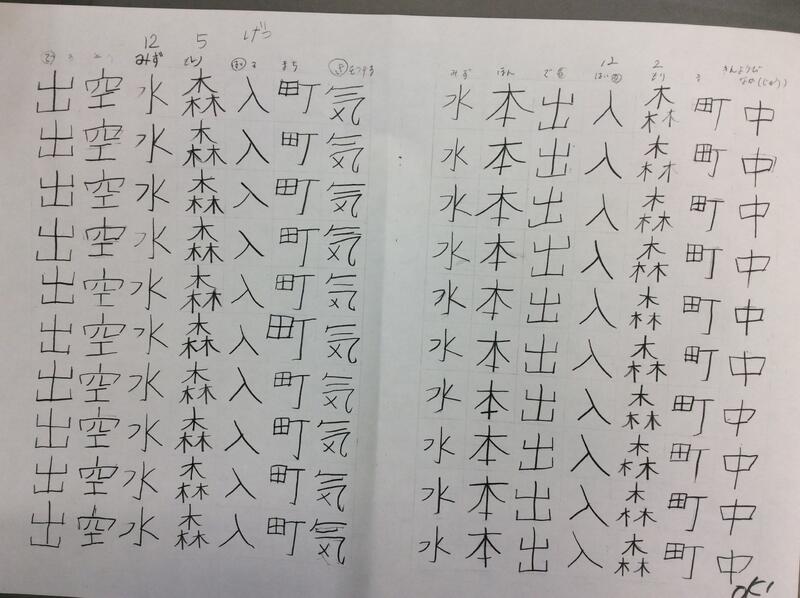 きんようび
なか(じゅう)
中中中中中中中中中中
町町町町町町町町町町
2
もり
森森森森森森森森森森
12
入入入入入入入入入入
出出出出出出出出出出
ほん
本本本本本本本本本本
みず
水水水水水水水水水水
気気気気気気気気気気
まち
町町町町町町町町町町
げつ
入入入入入入入入入入
5
もり
森森森森森森森森森森
12
みず
水水水水水水水水水水
空空空空空空空空空空
出出出出出出出出出出
OK!